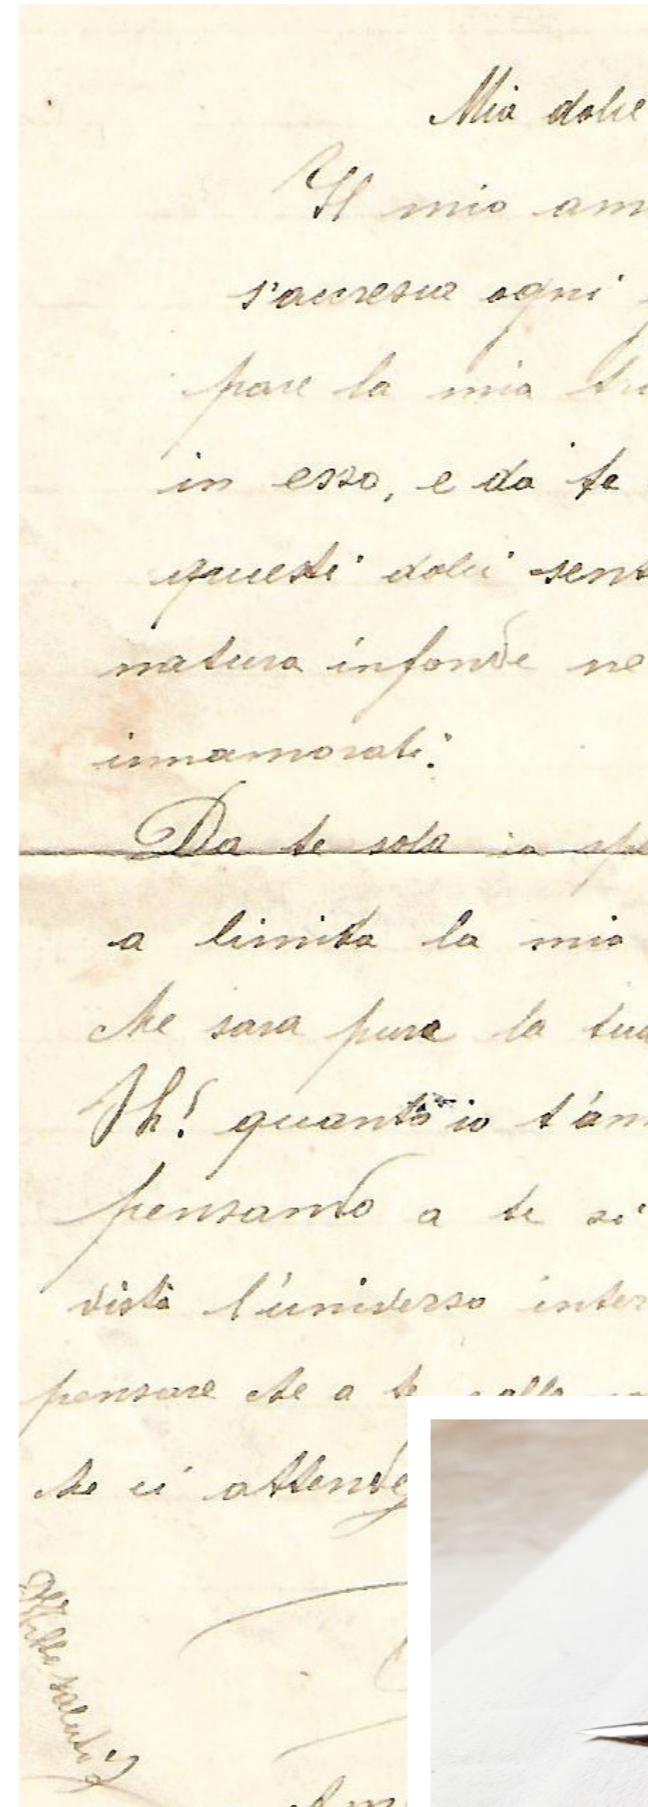 Mia dolce
Il mio am
s'accresce ogni
pare la mia
in esso, e da te
questi dolci sent
natura infonde ne
innamorati.
Da te sola io spe
a limita la mia
che sara pura la tua
Oh! quanto io t'am
pensando a te si
vista l'universo inter
pensare che a te
che ci attende
Mille saluti